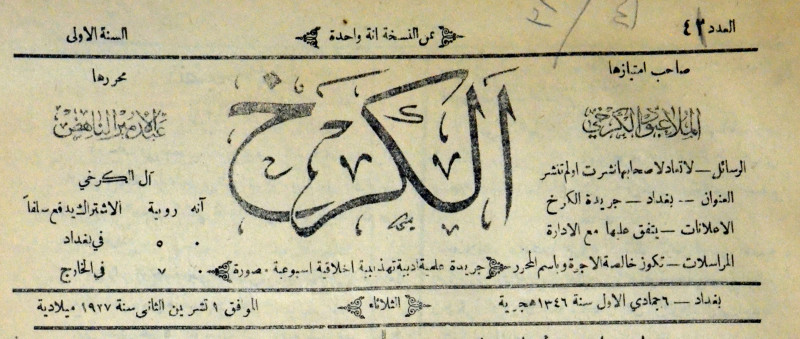 العدد ٤٢
ثمن النسخة انة واحدة
السنة الاولى
صاحب امتيازها
الملا عبود الكرخي
الرسائل — لا تعاد لاصحابها نشرت اولم تنشر
العنوان — بغداد — جريدة الكرخ
الاعلانات — يتفق عليها مع الادارة
المراسلات — تكوز خالصة الاجرة وباسم المحرر
الكرخ
جريدة علمية ادبية تهذيبية اخلاقية اسبوعية مصورة
محررها
عبد الامير الناهض
آل الكرخي
آنه روبية الاشتراك يدفع سلفاً
٠ ٥ في بغداد
٠ ٧ في الخارج
بغداد — ٦ جمادي الاول سنة ١٣٤٦ هجرية
الثلاثاء
الموفق ١ تشرين الثانى سنة ١٩٢٧ ميلادية